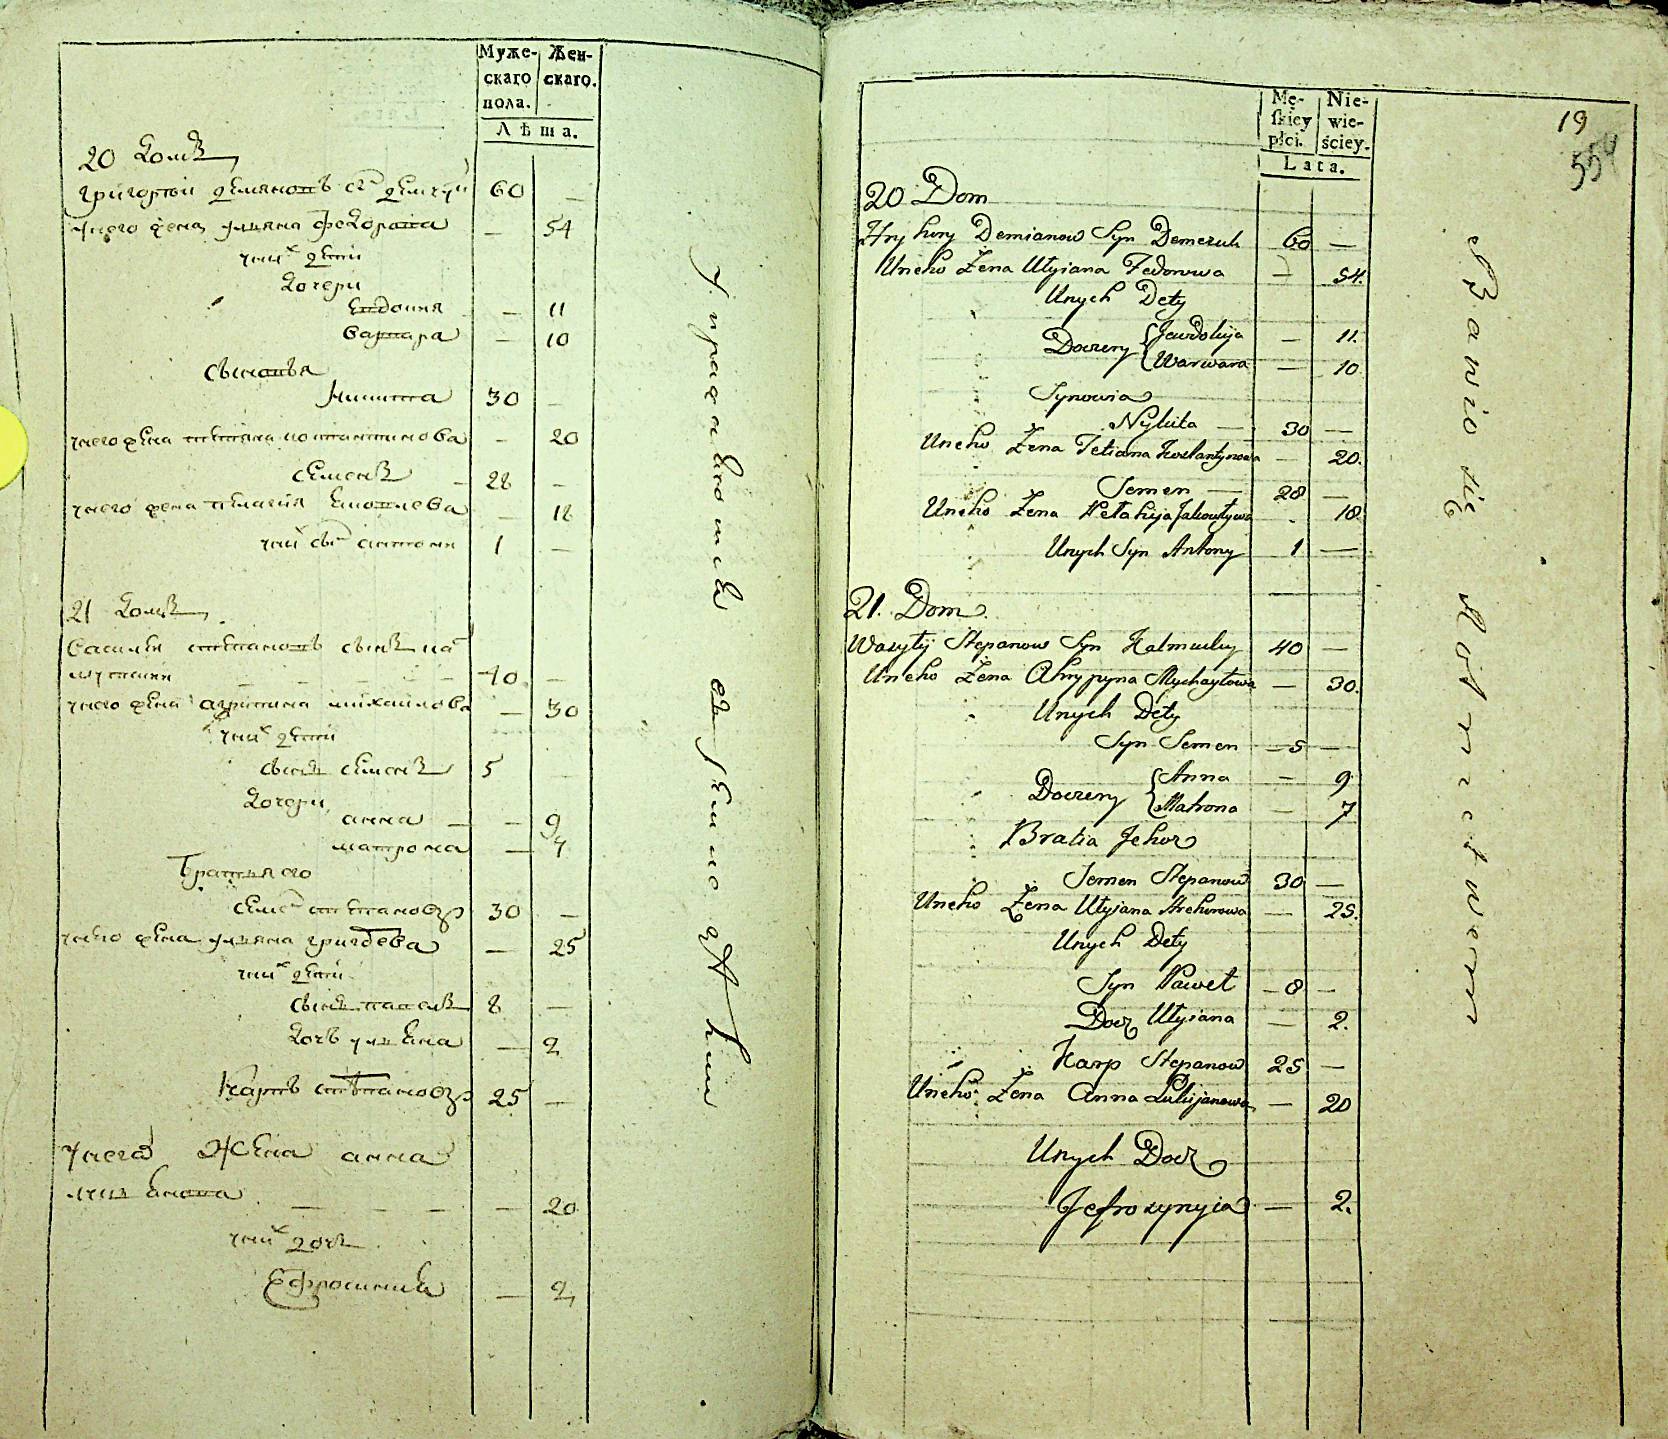 Муже-
скаго
пола.
Жен-
скаго.
Лѣта.
20 домъ
григорѣй демяновъ сꙑⷩ демчуⷦ 60 —
унего жена уляна федорова — 54
униⷯ дети
дочери
Евдокия — 11
варвара — 10
сыновья
Никита 30 —
унего жена татяна костантинова — 20
семенъ 28 —
унего жена пелагия — 18
униⷯ сⷩъ антони 1 —
21 домъ
василей степановъ сынъ каⷧ
мутикий 40 —
унего жена агрипина михаилова — 30
униⷯ дети
сынъ семенъ 5
дочери
анна — 9
матрона — 7
братья его
семеⷩ степановъ 30 —
унего жена уляна григорева — 25
униⷯ дети
сынъ павелъ 8 —
дочь улияна — 2
Карпъ степановъ 25 —
унего жена анна
лукянова — 20
униⷯ дочь
Ефросиния — 2
упражняются въ хлебопашестве
Mę-
ſkiey
płci.
Nie-
wie-
ściey.
Lata.
19
554
20 Dom
Hryhory Demianow Syn Demczuk 60 —
Uneho Żena Ulyjana Fedorowa — 54.
Unych Dety
Doczery { Jewdokija — 11.
Warwara — 10
Synowia
Nykita — 30 —
Uneho Żena Tetiana Kostantynowa — 20.
Semen — 28 —
Uneho Żena Pelahija Jakowlywa . 18.
Unych Syn Antony 1 —
21. Dom
Wasylij Stepanow Syn Kalmucky 40 —
Uneho Żena Ahrypyna Mychayłowa — 30.
Unych Dety
Syn Semen — 5 —
Doczery { Anna — 9
Matrona — 7
Bratia Jehoz
Semen Stepanow 30 —
Uneho Żena Ulyjana Hrehorowa — 25.
Unych Dety
Syn Paweł — 8 —
Docz Ulyiana — 2.
Karp Stepanow 25 —
Uneho Żena Anna Lukijanowa — 20
Unych Docz
Jefrozynyia — 2.
Bawio się Rolnictwem